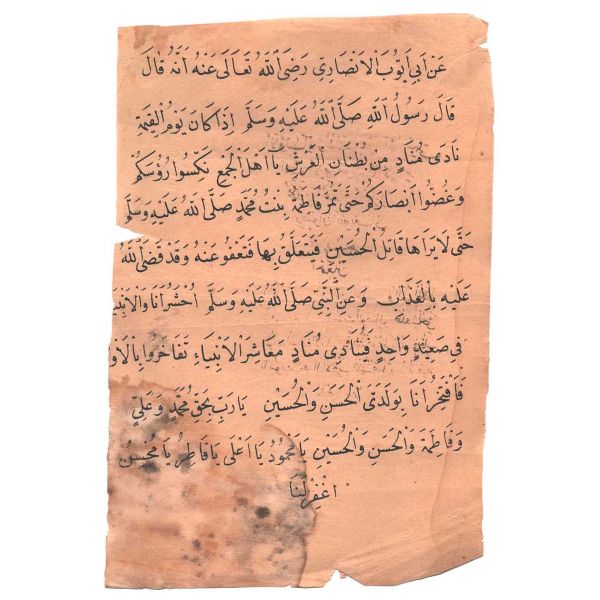 عَنْ اَبِي اَيُّوبَ الْاَنْصَارِي رَضِيَ اللهُ تَعَالَى عَنْهُ اَنَّهُ قَالَ
قَالَ رَسُولُ اللهِ صَلَّى اللهُ عَلَيْهِ وَسَلَّمَ اِذَا كَانَ يَوْمُ الْقِيٰمَةِ
نَادَى مُنَادٍ مِنْ بُطْنَانِ الْعَرْشِ يَا اَهْلَ الْجَمْعِ نَكِّسُوا رُؤُسَكُمْ
وَغُضُّوا اَبْصَارَكُمْ حَتَّى تَمُرَّ فَاطِمَةُ بِنْتُ مُحَمَّدٍ صَلَّى اللهُ عَلَيْهِ وَسَلَّمَ
حَتَّى لَا يَرَاهَا قَاتِلُ الْحُسَيْنِ فَيَتَعَلَّقُ بِهَا فَتَعْفُو عَنْهُ وَقَدْ قَضَى اللهُ
عَلَيْهِ بِالْعَذَابِ وَعَنِ النَّبِيِّ صَلَّى اللهُ عَلَيْهِ وَسَلَّمَ اُحْشَرُ اَنَا وَالْاَنْبِيَا
فِي صَعِيدٍ وَاحِدٍ فَيُنَادِي مُنَادٍ مَعَاشِرَ الْاَنْبِيَاءِ تَفَاخَرُوا بِالْاَوْ
فَافْتَخِرُ اَنَا بِوَلَدَيَّ الْحَسَنِ وَالْحُسَيْنِ يَا رَبِّ بِحَقِّ مُحَمَّدٍ وَعَلِيٍّ
وَفَاطِمَةَ وَالْحَسَنِ وَالْحُسَيْنِ يَا مَحْمُودُ يَا اَعْلَى يَا فَاطِرُ يَا مُحْسِنُ
اغْفِرْ لَنَا